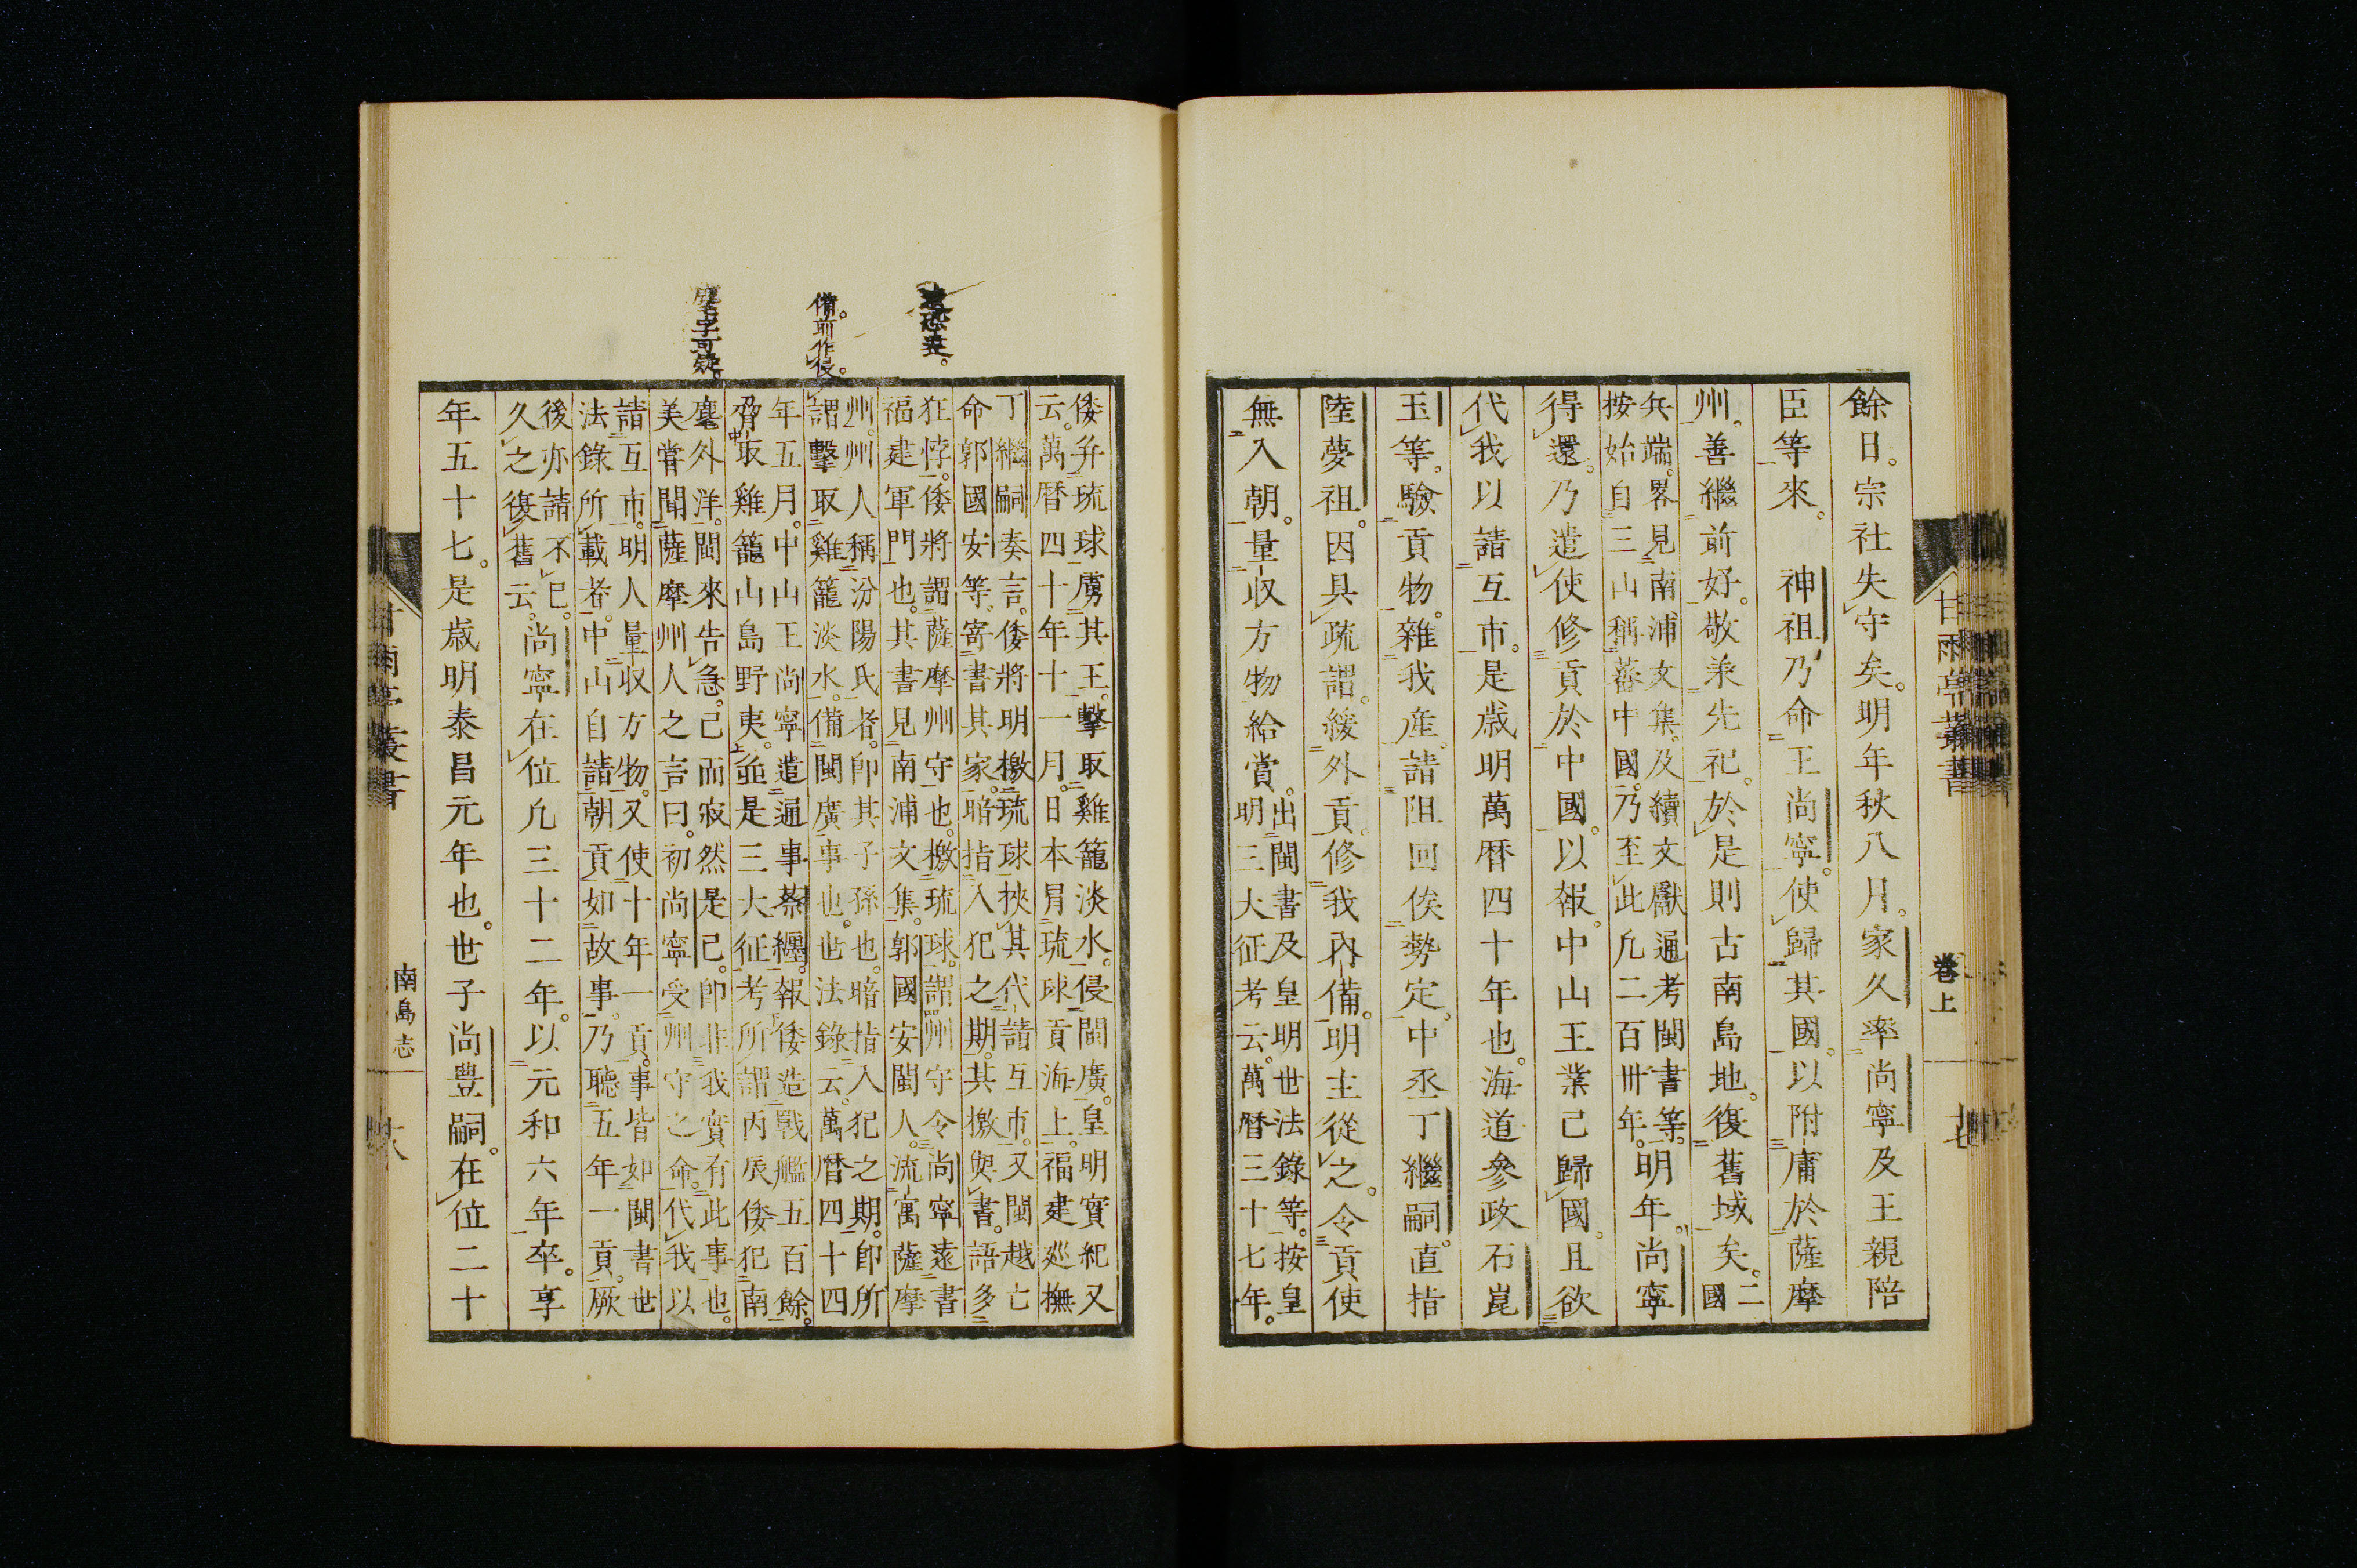 餘日。宗社失守矣。明年秋八月。家久率尚寧及王親陪
臣等來。神祖乃命王尚寧。使歸其國。以附庸於薩摩
州。善繼前好。敬承先祀。於是則古南島地。復舊域矣。二國
兵端。畧見南浦文集。及續文獻通考閩書等。
按始自三山稱蕃中國。乃至此凡二百卅年。
明年。尚寧
得還。乃遣使修貢於中國。以報。中山王業已歸國。且欲
代我以請互市。是歲明萬曆四十年也。海道參政石崑
玉等。驗貢物。雜我產。請阻回俟勢定。中丞丁繼嗣。直指
陸夢祖。因具疏謂。緩外貢。修我內備。明主從之。令貢使
無入朝。量收方物給賞。
出閩書及皇明世法錄等。按皇
明三大征考云。萬曆三十七年。
卷上
甘雨亭叢書
倭弁琉球。虜其王。擊取雞籠淡水。侵閩廣。皇明實紀又
云。萬曆四十年十一月。日本冐琉球貢海上。福建巡撫
丁繼嗣奏言。倭將明檄琉球。挾其代請互市。又閩越亡
命郭國安等。寄書其家。暗指入犯之期。其檄與書。語多
狂悖。倭將謂薩摩州守也。檄琉球。謂州守令尚寧遠書
福建軍門也。其書見南浦文集。郭國安閩人。流寓薩摩
州。州人稱汾陽氏者。卽其子孫也。暗指入犯之期。卽所
謂擊取雞籠淡水。備閩廣事也。世法錄云。萬曆四十四
年五月。中山王尚寧遣通事蔡廛。報倭造戰艦五百餘。
脅取雞籠山島野夷。並是三大征考所謂丙辰倭犯南
麂外洋。閩來告急。已而寂然是已。卽非我實有此事也。
美嘗聞薩摩州人之言曰。初尚寧受州守之命。代我以
請互市。明人量收方物。又使十年一貢。事皆如閩書世
法錄所載者。中山自請朝貢如故事。乃聽五年一貢。厥
後亦請不已。
久之復舊云。
尚寧在位凡三十二年。以元和六年卒。享
年五十七。是歲明泰昌元年也。世子尚豊嗣。在位二十
備前作侵。
字可疑。
甘雨亭叢書
南島志